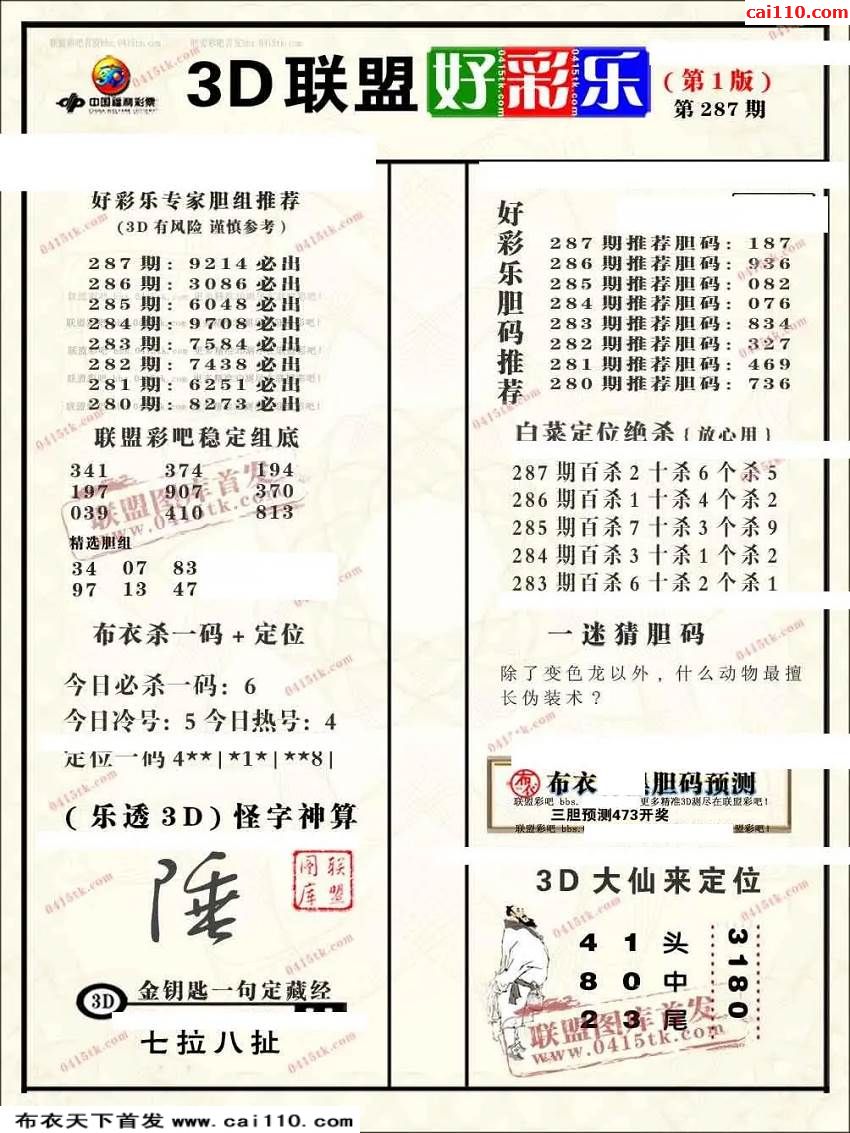 cai110.com
联盟彩吧首发bbs.0415tk.com
中国福利彩票
CHINA WELFARE LOTTERY
3D联盟好彩乐
0415tk.com 0415tk.com 0415tk.com
(第1版)
第287期
好彩乐专家胆组推荐
(3D有风险 谨慎参考)
287期: 9214必出
286期: 3086必出
285期: 6048必出
284期: 9708必出
283期: 7584必出
282期: 7438必出
281期: 6251必出
280期: 8273必出
联盟彩吧稳定组底
341 374 194
197 907 370
039 410 813
联盟图库首发
www.0415tk.com
精选胆组
34 07 83
97 13 47
布衣杀一码+定位
今日必杀一码: 6
今日冷号: 5 今日热号: 4
定位一码 4**|*1*|**8|
(乐透3D)怪字神算
陲
联盟图库
3D 金钥匙一句定藏经
七拉八扯
好彩乐胆码推荐
287期推荐胆码: 187
286期推荐胆码: 936
285期推荐胆码: 082
284期推荐胆码: 076
283期推荐胆码: 834
282期推荐胆码: 327
281期推荐胆码: 469
280期推荐胆码: 736
白菜定位绝杀{放心用}
287期百杀2十杀6个杀5
286期百杀1十杀4个杀2
285期百杀7十杀3个杀9
284期百杀3十杀1个杀2
283期百杀6十杀2个杀1
一迷猜胆码
除了变色龙以外，什么动物最擅
长伪装术？
布衣 胆码预测
联盟彩吧 bbs. 更多精准3D测尽在联盟彩吧!
三胆预测473开奖
3D大仙来定位
4 1 头
8 0 中
2 3 尾
3180
联盟图库首发
www.0415tk.com
布衣天下首发 www.cai110.com